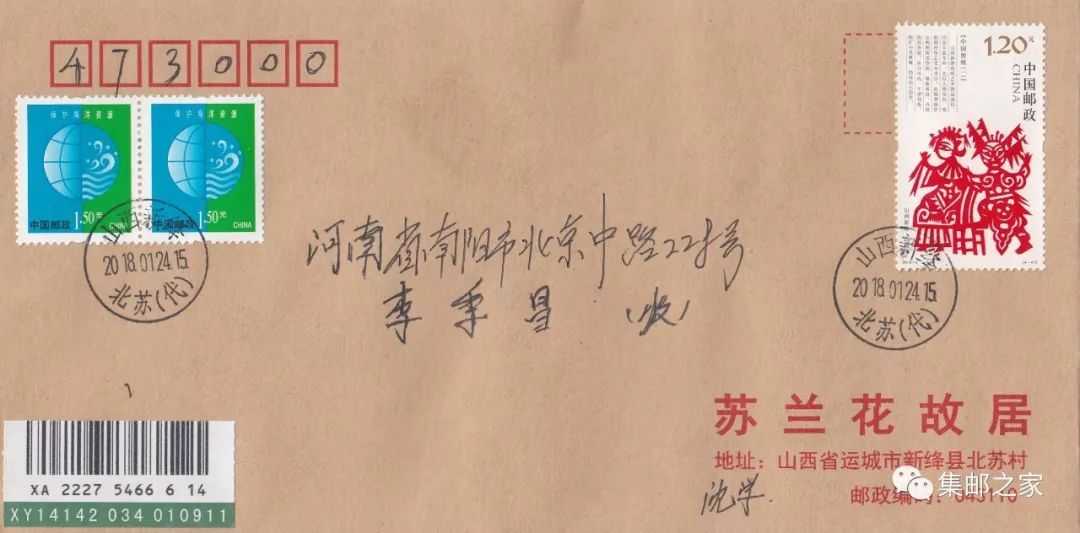 473000
保护海洋资源
中国邮政 1.50元 CHINA
保护海洋资源
中国邮政 1.50元 CHINA
山西新绛
2018.01.24.15
北苏(代)
1.20元
中国邮政
CHINA
《中国剪纸(一)》
山西新绛
2018.01.24.15
北苏(代)
河南省南阳市北京中路228号
李秉昌(收)
XA 2227 5466 6 14
XY14142 034 010911
苏兰花故居
地址：山西省运城市新绛县北苏村
邮政编码：043110
沈学
集邮之家